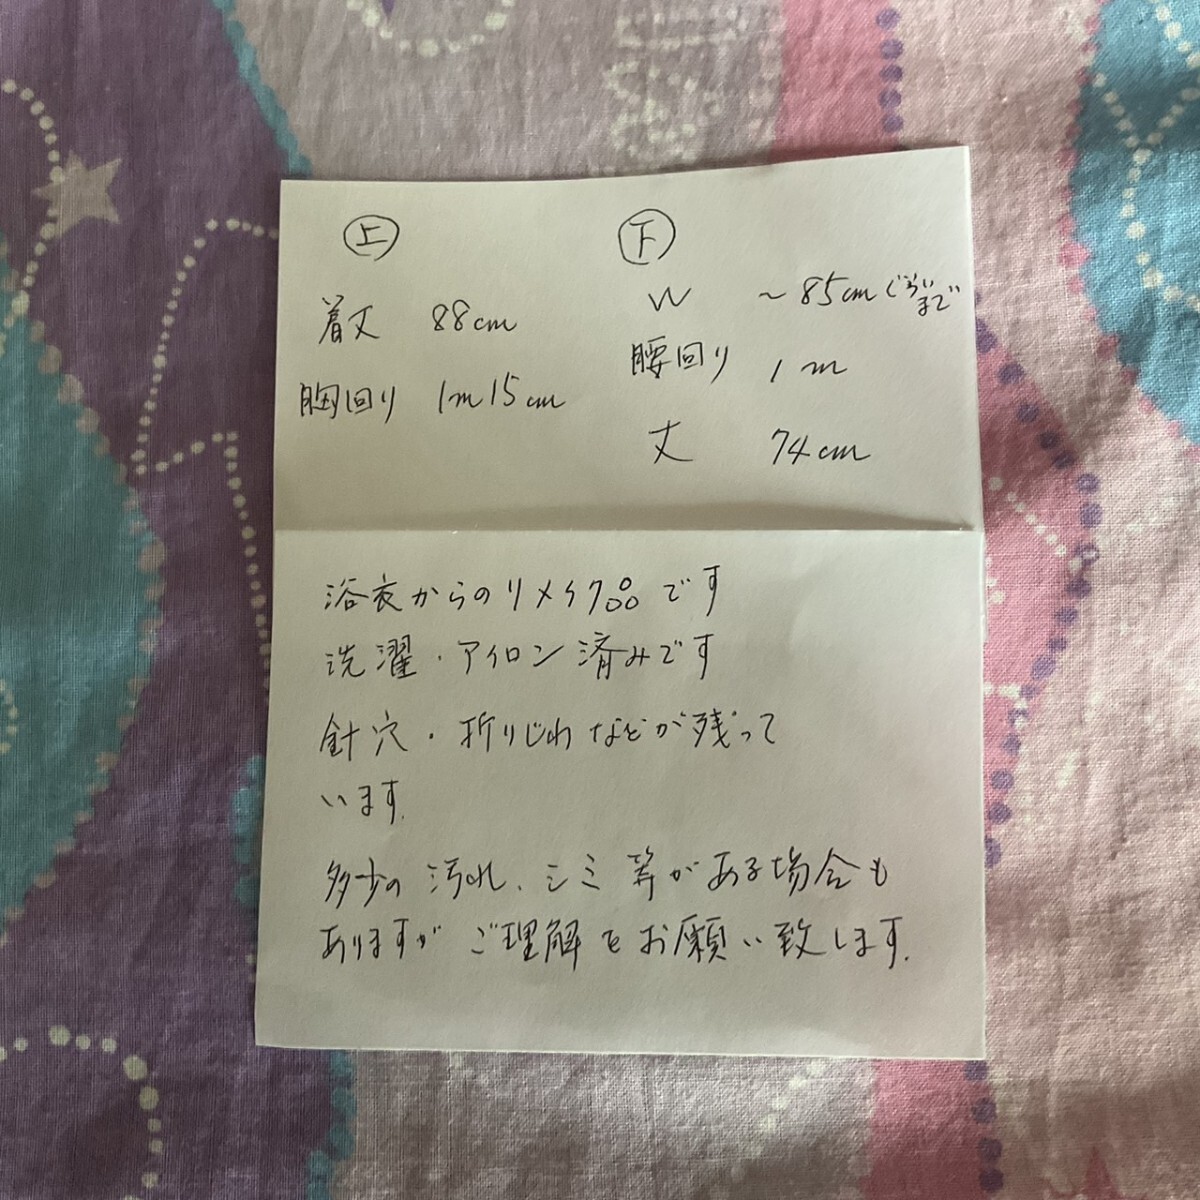 上
着丈 88cm
胸回り 1m15cm
下
W ～85cmぐらいまで
腰回り 1m
丈 74cm
浴衣からのリメイク品です
洗濯・アイロン済みです
針穴・折りじわなどが残って
います.
多少の汚れ、シミ等がある場合も
ありますが ご理解をお願い致します.